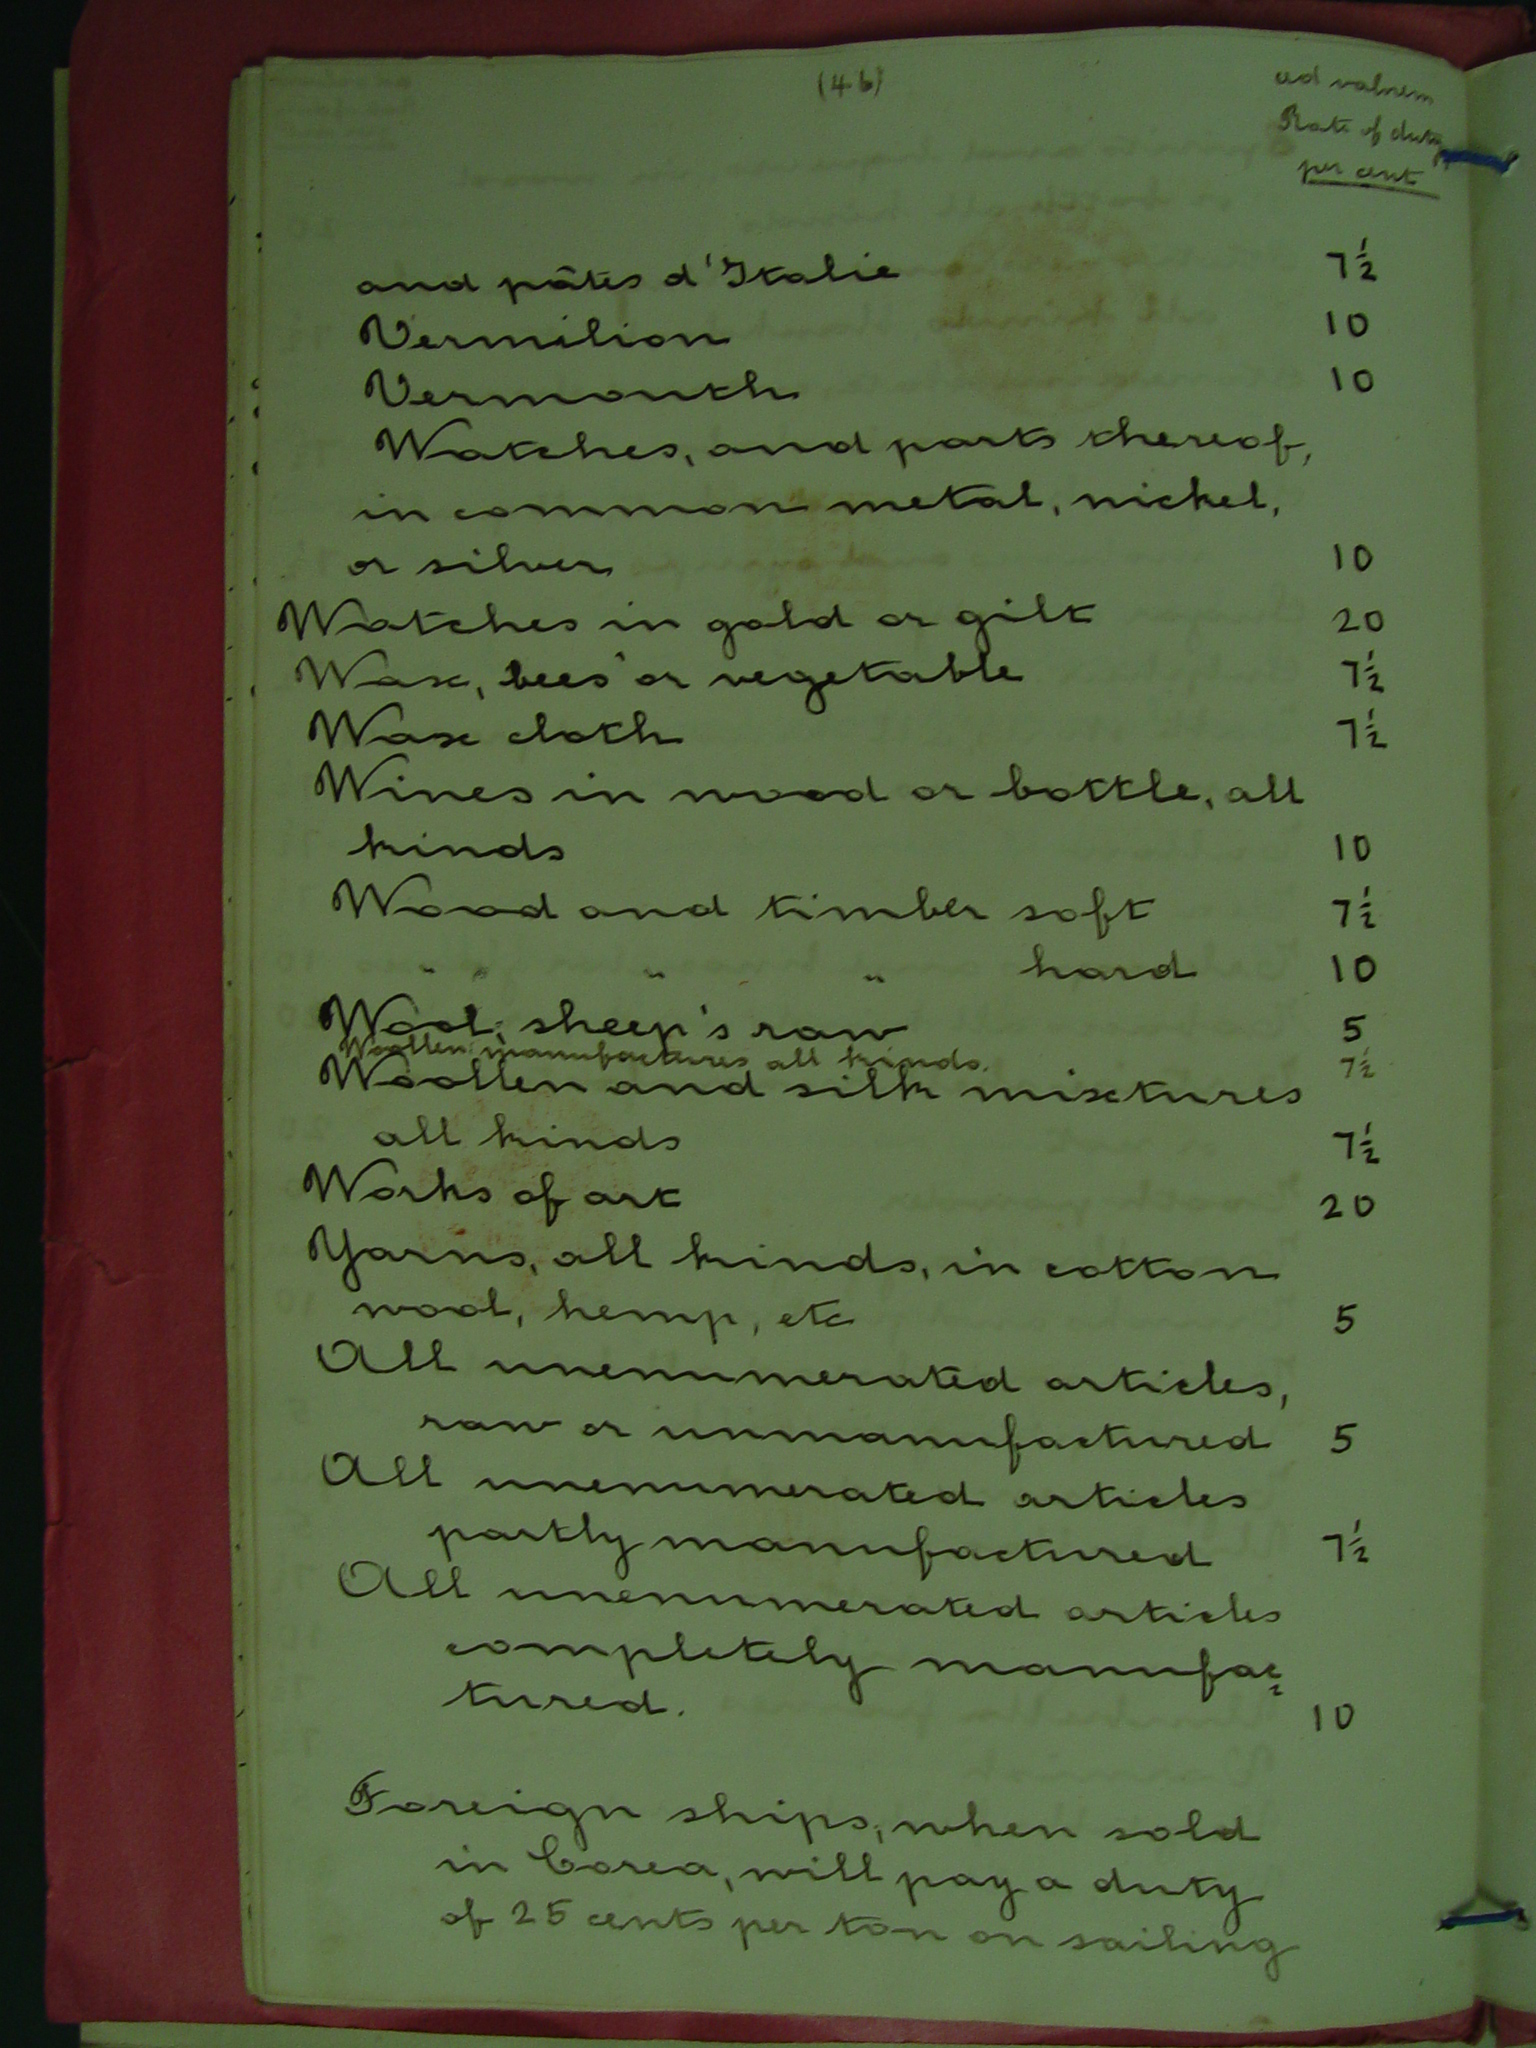 (46)
ad valorem
Rate of duty
per cent
and pâtes d'Italie 7½
Vermilion 10
Vermouth 10
Watches, and parts thereof,
in common metal, nickel,
or silver 10
Watches in gold or gilt 20
Wax, bees' or vegetable 7½
Wax cloth 7½
Wines in wood or bottle, all
kinds 10
Wood and timber soft 7½
" " " " hard 10
Wool, sheep's raw 5
Woollen manufactures all kinds. 7½
Woollen and silk mixtures
all kinds 7½
Works of art 20
Yarns, all kinds, in cotton
wool, hemp, etc 5
All unenumerated articles,
raw or unmanufactured 5
All unenumerated articles
partly manufactured 7½
All unenumerated articles
completely manufac=
tured. 10
Foreign ships, when sold
in Corea, will pay a duty
of 25 cents per ton on sailing